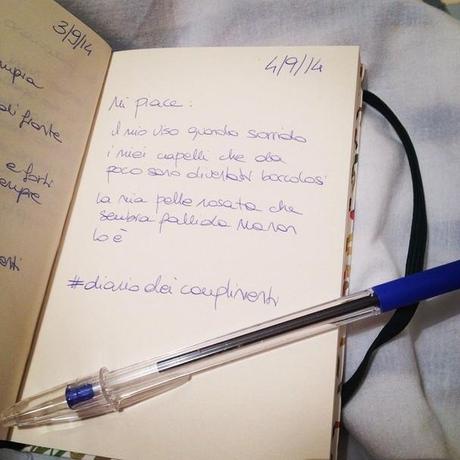 3/9/14
di fronte
e forti
4/9/14
Mi piace:
il mio viso quando sorrido
i miei capelli che da
poco sono diventati boccolosi
la mia pelle rosata che
sembra pallida ma non
lo è
#diariodeicomplimenti